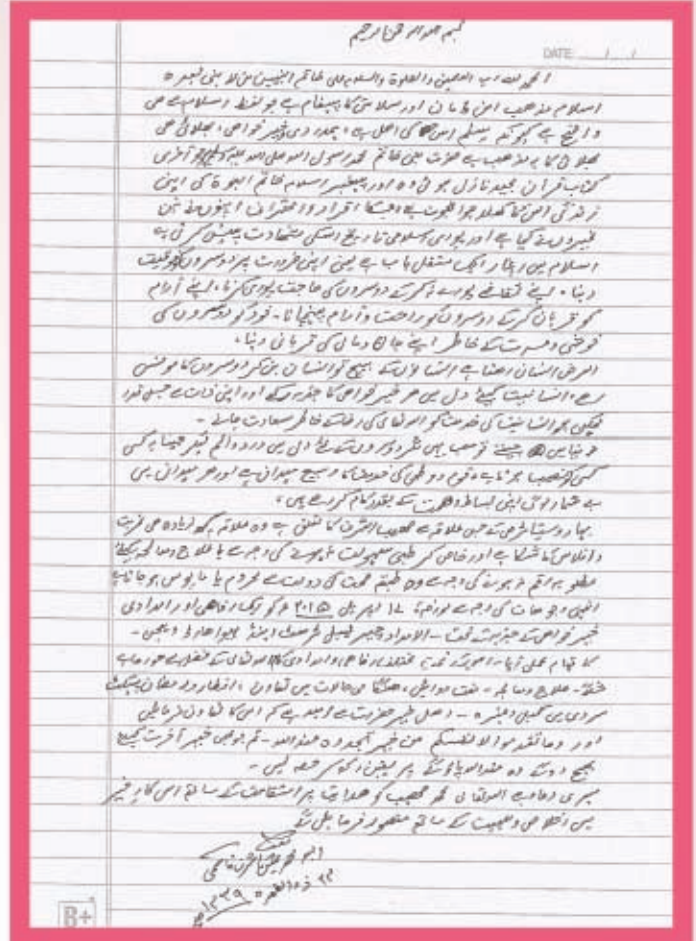 بسم اللہ الرحمن الرحیم
DATE: / /
الحمد للہ رب العلمین والصلوۃ والسلام علی خاتم النبیین من لا نبی بعدہ
اسلام مذھب امن و امان اور سلامتی کا پیغام ہے جو لفظ اسلام سے ہی
واضح ہے کیونکہ سلم اس کی اصل ہے، ہمدردی وخیر خواہی، بھلائی ہی
بھلائی کا یہ مذھب ہے حضرت خاتم محمد رسول اللہ صلی اللہ علیہ وسلم پر آخری
کتاب قرآن مجید نازل ہوئی وہ اور پیغمبر اسلام خاتم النبوۃ کی اپنی
زندگی اس کا کھلا ہوا ثبوت ہے جسکا اقرار واعتراف اپنوں نے غیروں نے کیا ہے اور پوری اسلامی تاریخ اسکی شہادت پیش کرتی ہے
اسلام میں ایثار ایک مستقل باب ہے یعنی اپنی ضرورت پر دوسروں کو فوقیت
دینا، اپنے تقاضے پورے نہ کرکے دوسروں کی حاجت پوری کرنا، اپنے آرام
کو قربان کرکے دوسروں کو راحت وآرام پہنچانا۔ خود کو دوسروں کی
خوشی ومسرت کے خاطر اپنے جان ومال کی قربانی دینا،
الغرض انسان رہنا ہے انسانوں کے بیچ تو انسان بن کر دوسروں کا مونس
رہے، انسانیت کیلئے دل میں ہر خیر خواہی کا جذبہ رکھے اور اپنی ذات سے جس قدر
ہو انسانیت کی خدمت کو اللہ تعالی کی رضا کے خاطر سعادت جانے۔
دنیا میں جیتے تو سب ہیں مگر دوسروں کے لئے دل میں درد والم لیکر جینا یہ کسی
کسی کو نصیب ہوتا ہے، قوم ووطن کی خدمت کا وسیع میدان ہے اور ہر میدان میں
بے شمار لوگ اپنی بساط وہمت کے بقدر کام کر رہے ہیں،
بہار وسیتامڑھی کے جس علاقہ سے محبوب اشرف کا تعلق ہے وہ علاقہ کچھ زیادہ ہی غربت
وافلاس کا شکار ہے اور خاص کر طبی سہولت نہ ہونے کی وجہ سے یا علاج ومعالجہ کیلئے
مطلوبہ رقم نہ ہونے کی وجہ سے وہ طبقہ صحت کی دولت سے محروم یا مایوس ہو جاتا ہے
انہی وجوہات کی وجہ سے مورخہ 12 اپریل 2015 ء کو ایک رفاہی اور امدادی
خیر خواہی کے جذبہ کے تحت۔ الامداد چیریٹیبل ٹرسٹ اینڈ
کا قیام عمل آیا۔ اس کے تحت مختلف رفاہی وامدادی کام اللہ تعالی کے فضل سے ہو رہا ہے
مثلاً۔ علاج ومعالجہ۔ مفت دوائیں، ہنگامی حالات میں تعاون، افطار ورمضان پیکٹ
سردی میں کمبل وغیرہ۔ اہل خیر حضرات سے امید ہے کہ اس کا تعاون فرمائیں
اور وما تقدموا لانفسکم من خیر تجدوہ عنداللہ۔ تم جو بھی خیر آخرت کیلئے
بھیج دوگے وہ عنداللہ پاؤگے پر یقین رکھ کر حصہ لیں۔
میری دعا ہے اللہ تعالی محمد محبوب کو ھدایت پر استقامت کے ساتھ اس کار خیر
میں اخلاص وللہیت کے ساتھ منظور فرمالے
فقط
اشرف قاسمی
ذوالقعدہ 1439ھ
B+